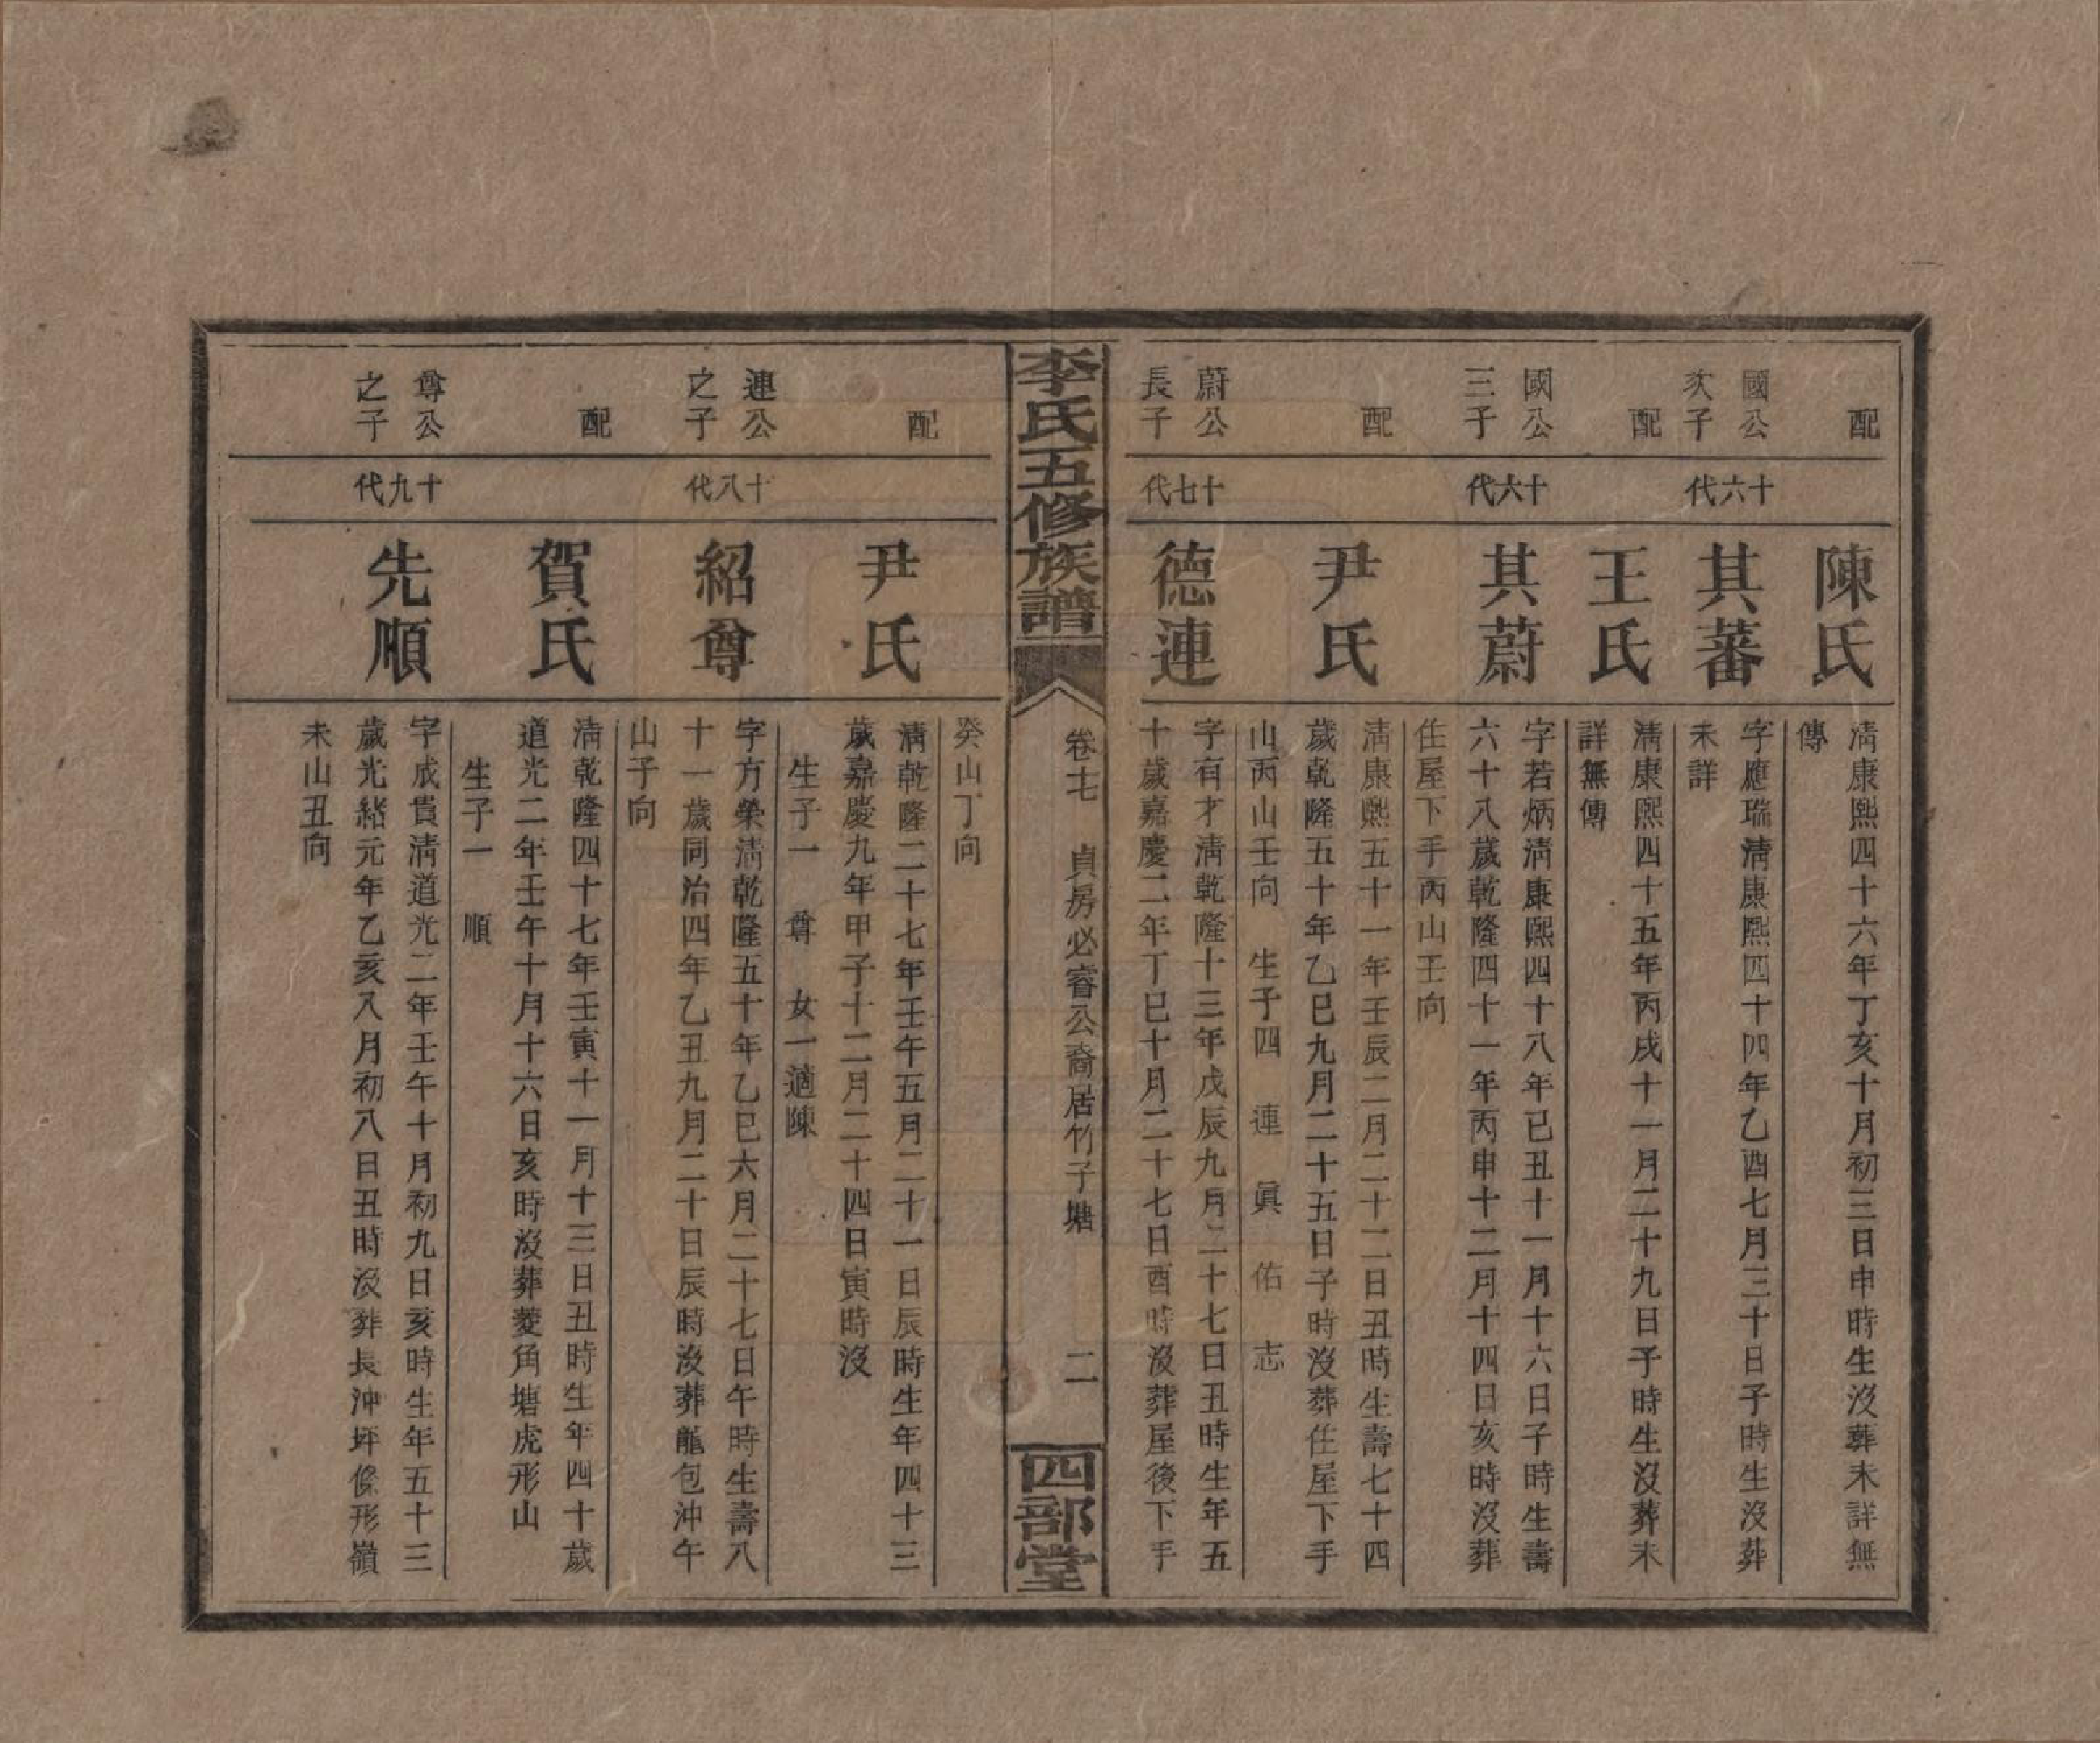 配
陳氏
淸康熙四十六年丁亥十月初三日申時生沒葬未詳無
傳
國公
次子
十六代
其蕃
字應瑞淸康熙四十四年乙酉七月三十日子時生沒葬
未詳
配
王氏
淸康熙四十五年丙戌十一月二十九日子時生沒葬未
詳無傳
國公
三子
十六代
其蔚
字若炳淸康熙四十八年己丑十一月十六日子時生壽
六十八歲乾隆四十一年丙申十二月十四日亥時沒葬
住屋下手丙山壬向
配
尹氏
淸康熙五十一年壬辰二月二十二日丑時生壽七十四
歲乾隆五十年乙巳九月二十五日子時沒葬住屋下手
山丙山壬向 生子四 連 眞 佑 志
蔚公
長子
十七代
德連
字有才淸乾隆十三年戊辰九月二十七日丑時生年五
十歲嘉慶二年丁巳十月二十七日酉時沒葬屋後下手
李氏五修族譜
卷十七 貞房必睿公裔居竹子塘 二
四部堂
癸山丁向
配
尹氏
淸乾隆二十七年壬午五月二十一日辰時生年四十三
歲嘉慶九年甲子十二月二十四日寅時沒
生子一 尊 女一適陳
連公
之子
十八代
紹尊
字方榮淸乾隆五十年乙巳六月二十七日午時生壽八
十一歲同治四年乙丑九月二十日辰時沒葬龍包沖午
山子向
配
賀氏
淸乾隆四十七年壬寅十一月十三日丑時生年四十歲
道光二年壬午十月十六日亥時沒葬菱角塘虎形山
生子一 順
尊公
之子
十九代
先順
字成貴淸道光二年壬午十月初九日亥時生年五十三
歲光緒元年乙亥八月初八日丑時沒葬長沖坪條形嶺
未山丑向